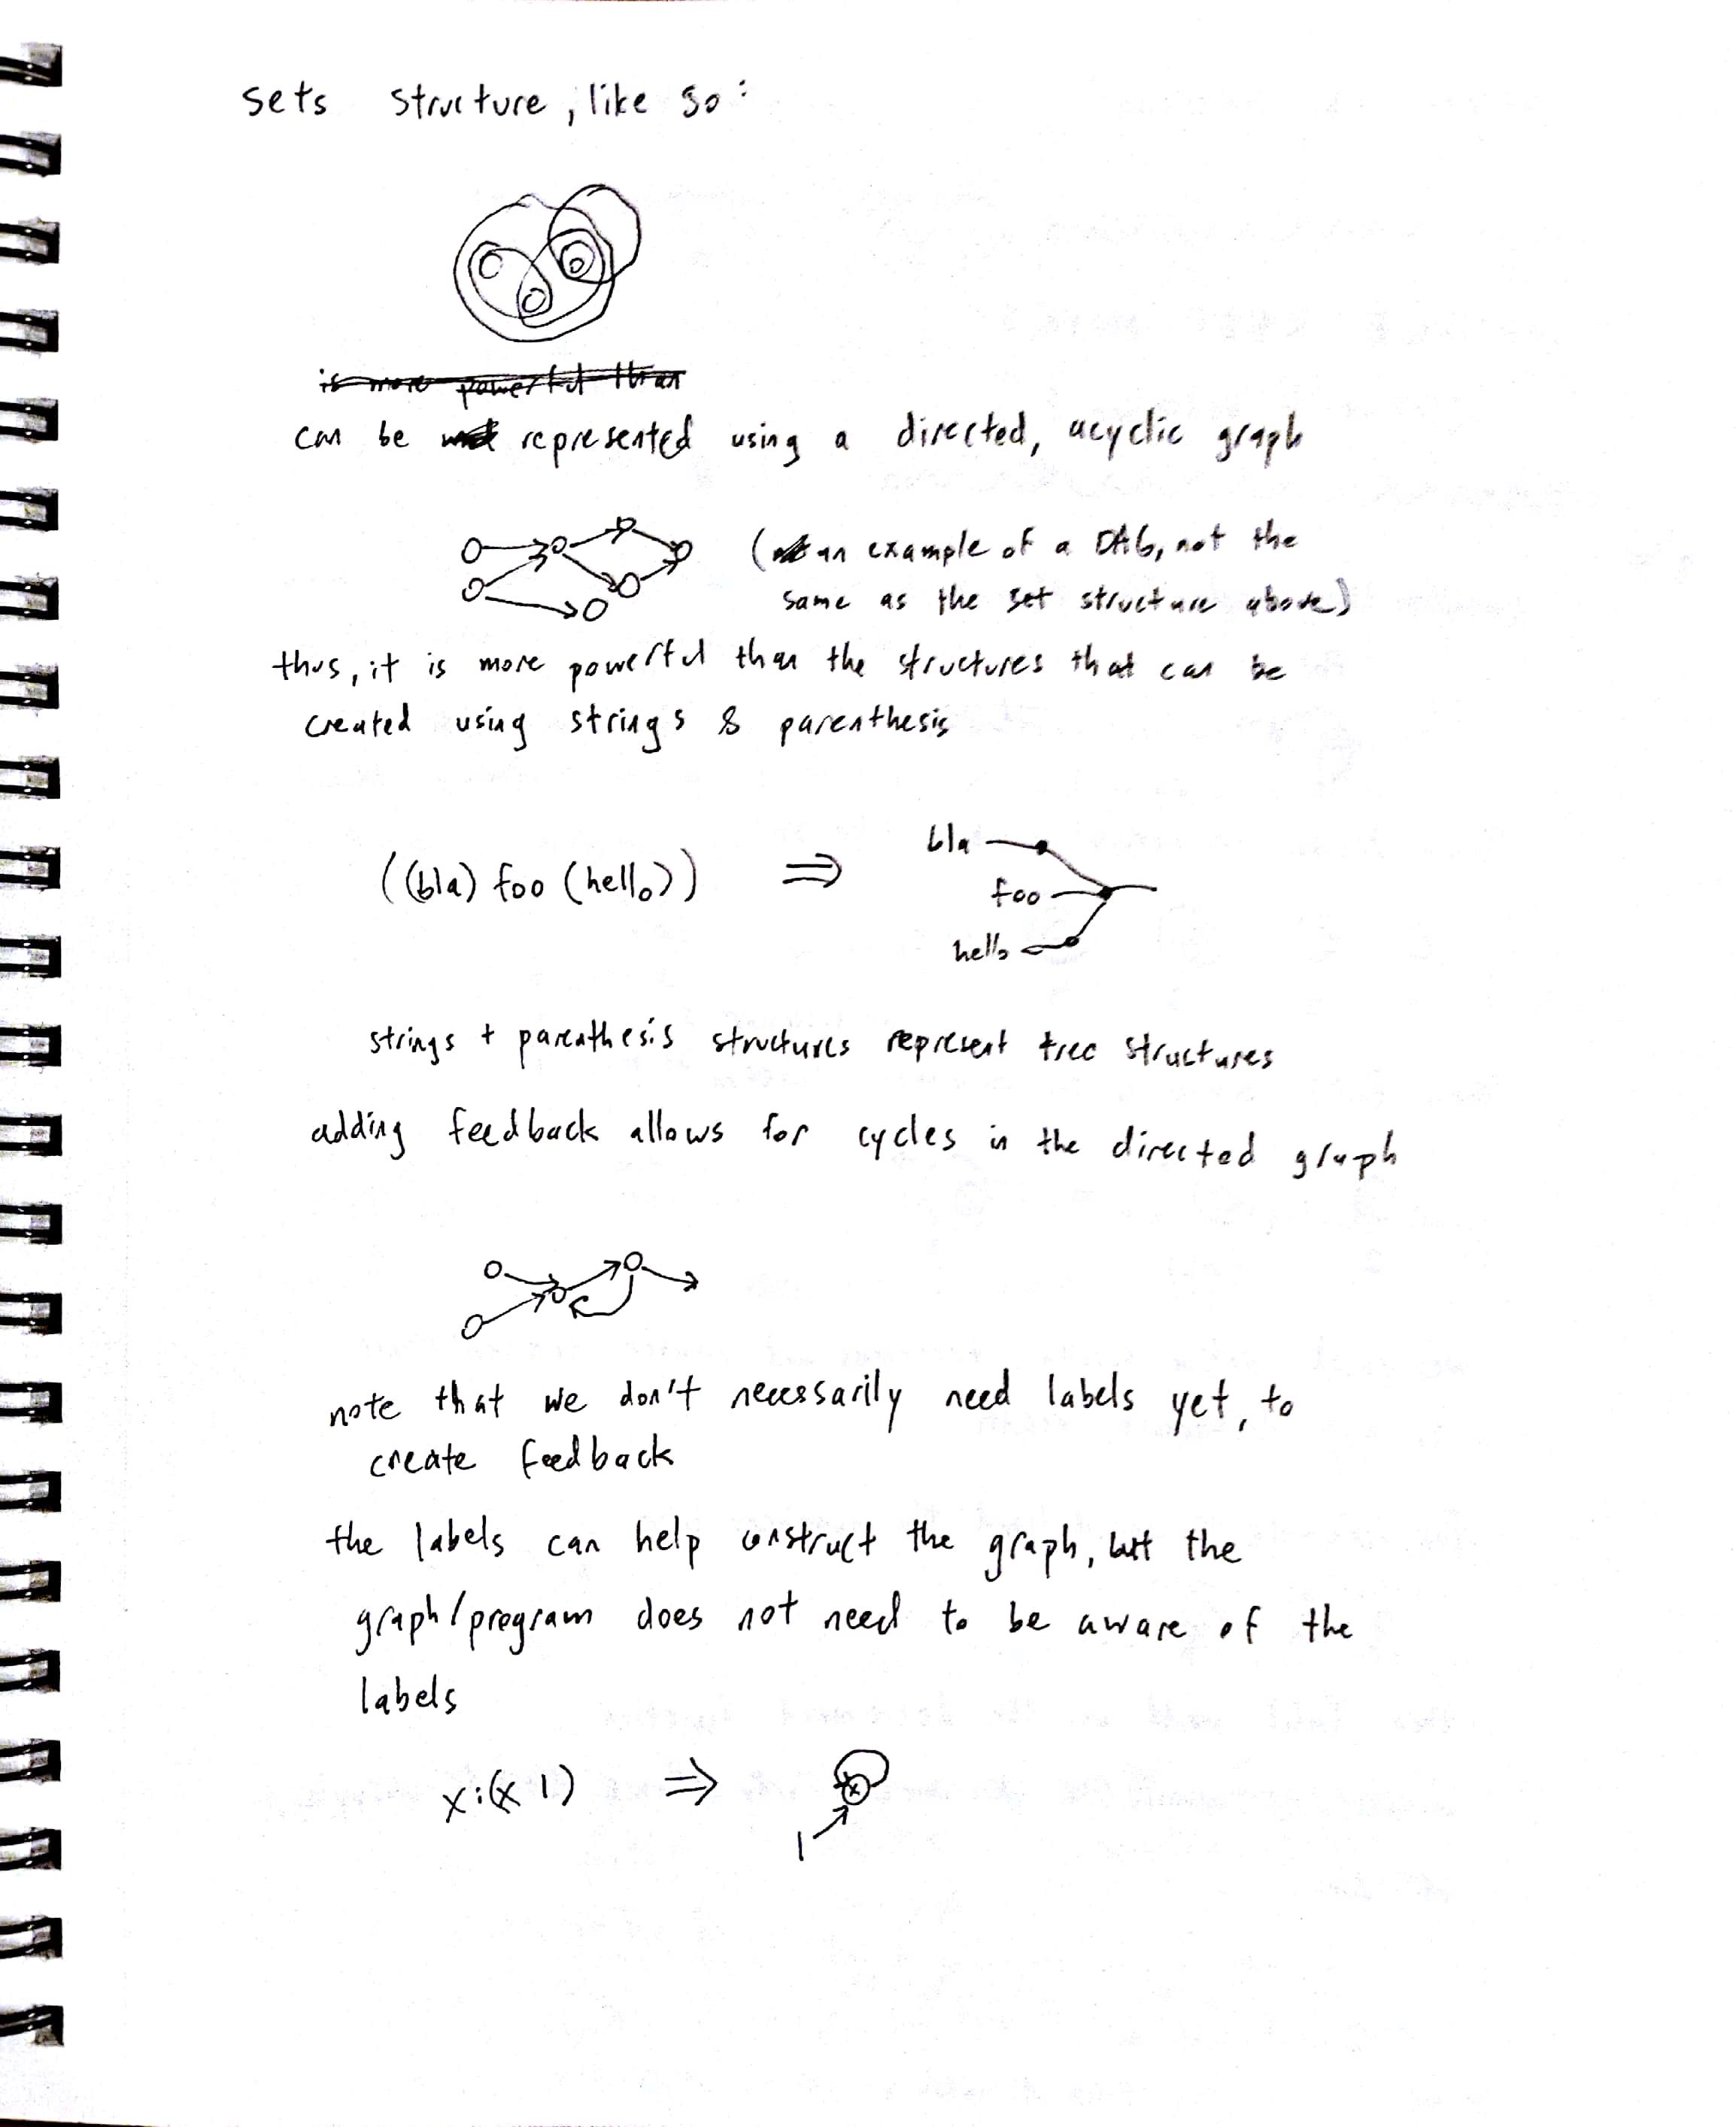 sets structure, like so:
is more powerful than
can be represented using a directed, acyclic graph
(an example of a DAG, not the
same as the set structure above)
thus, it is more powerful than the structures that can be
created using strings & parenthesis
((bla) foo (hello)) ⇒
bla
foo
hello
strings + parenthesis structures represent tree structures
adding feedback allows for cycles in the directed graph
note that we don't necessarily need labels yet, to
create feedback
the labels can help construct the graph, but the
graph/program does not need to be aware of the
labels
x:(x 1) ⇒
x
1